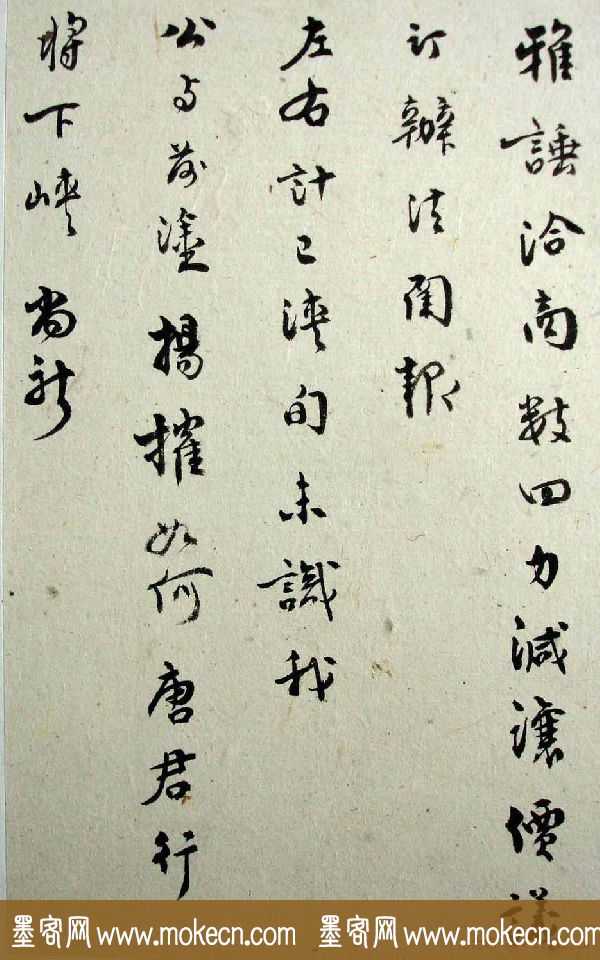 雅諈洽商數四力減讓價議
訂辦法圅報
左右計已浹旬未識我
公与前塗揚搉如何唐君行
將下峽尚祈
墨客网 www.mokecn.com 墨客网 www.mokecn.com